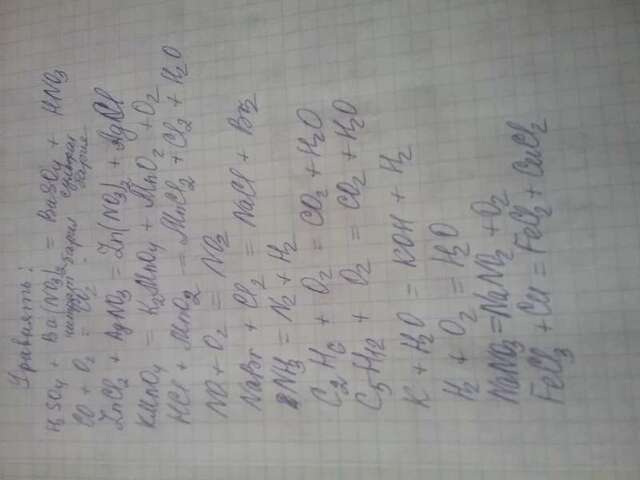 Уравнять:
H2SO4 + Ba(NO3)2 = BaSO4 + HNO3
нитрат бария сульфат бария
CO + O2 = CO2
ZnCl2 + AgNO3 = Zn(NO3)2 + AgCl
KMnO4 = K2MnO4 + MnO2 + O2
HCl + MnO2 = MnCl2 + Cl2 + H2O
NO + O2 = NO2
NaBr + Cl2 = NaCl + Br2
NH3 = N2 + H2
C2H6 + O2 = CO2 + H2O
C5H12 + O2 = CO2 + H2O
K + H2O = KOH + H2
H2 + O2 = H2O
NaNO3 = NaNO2 + O2
FeCl3 + Cu = FeCl2 + CuCl2